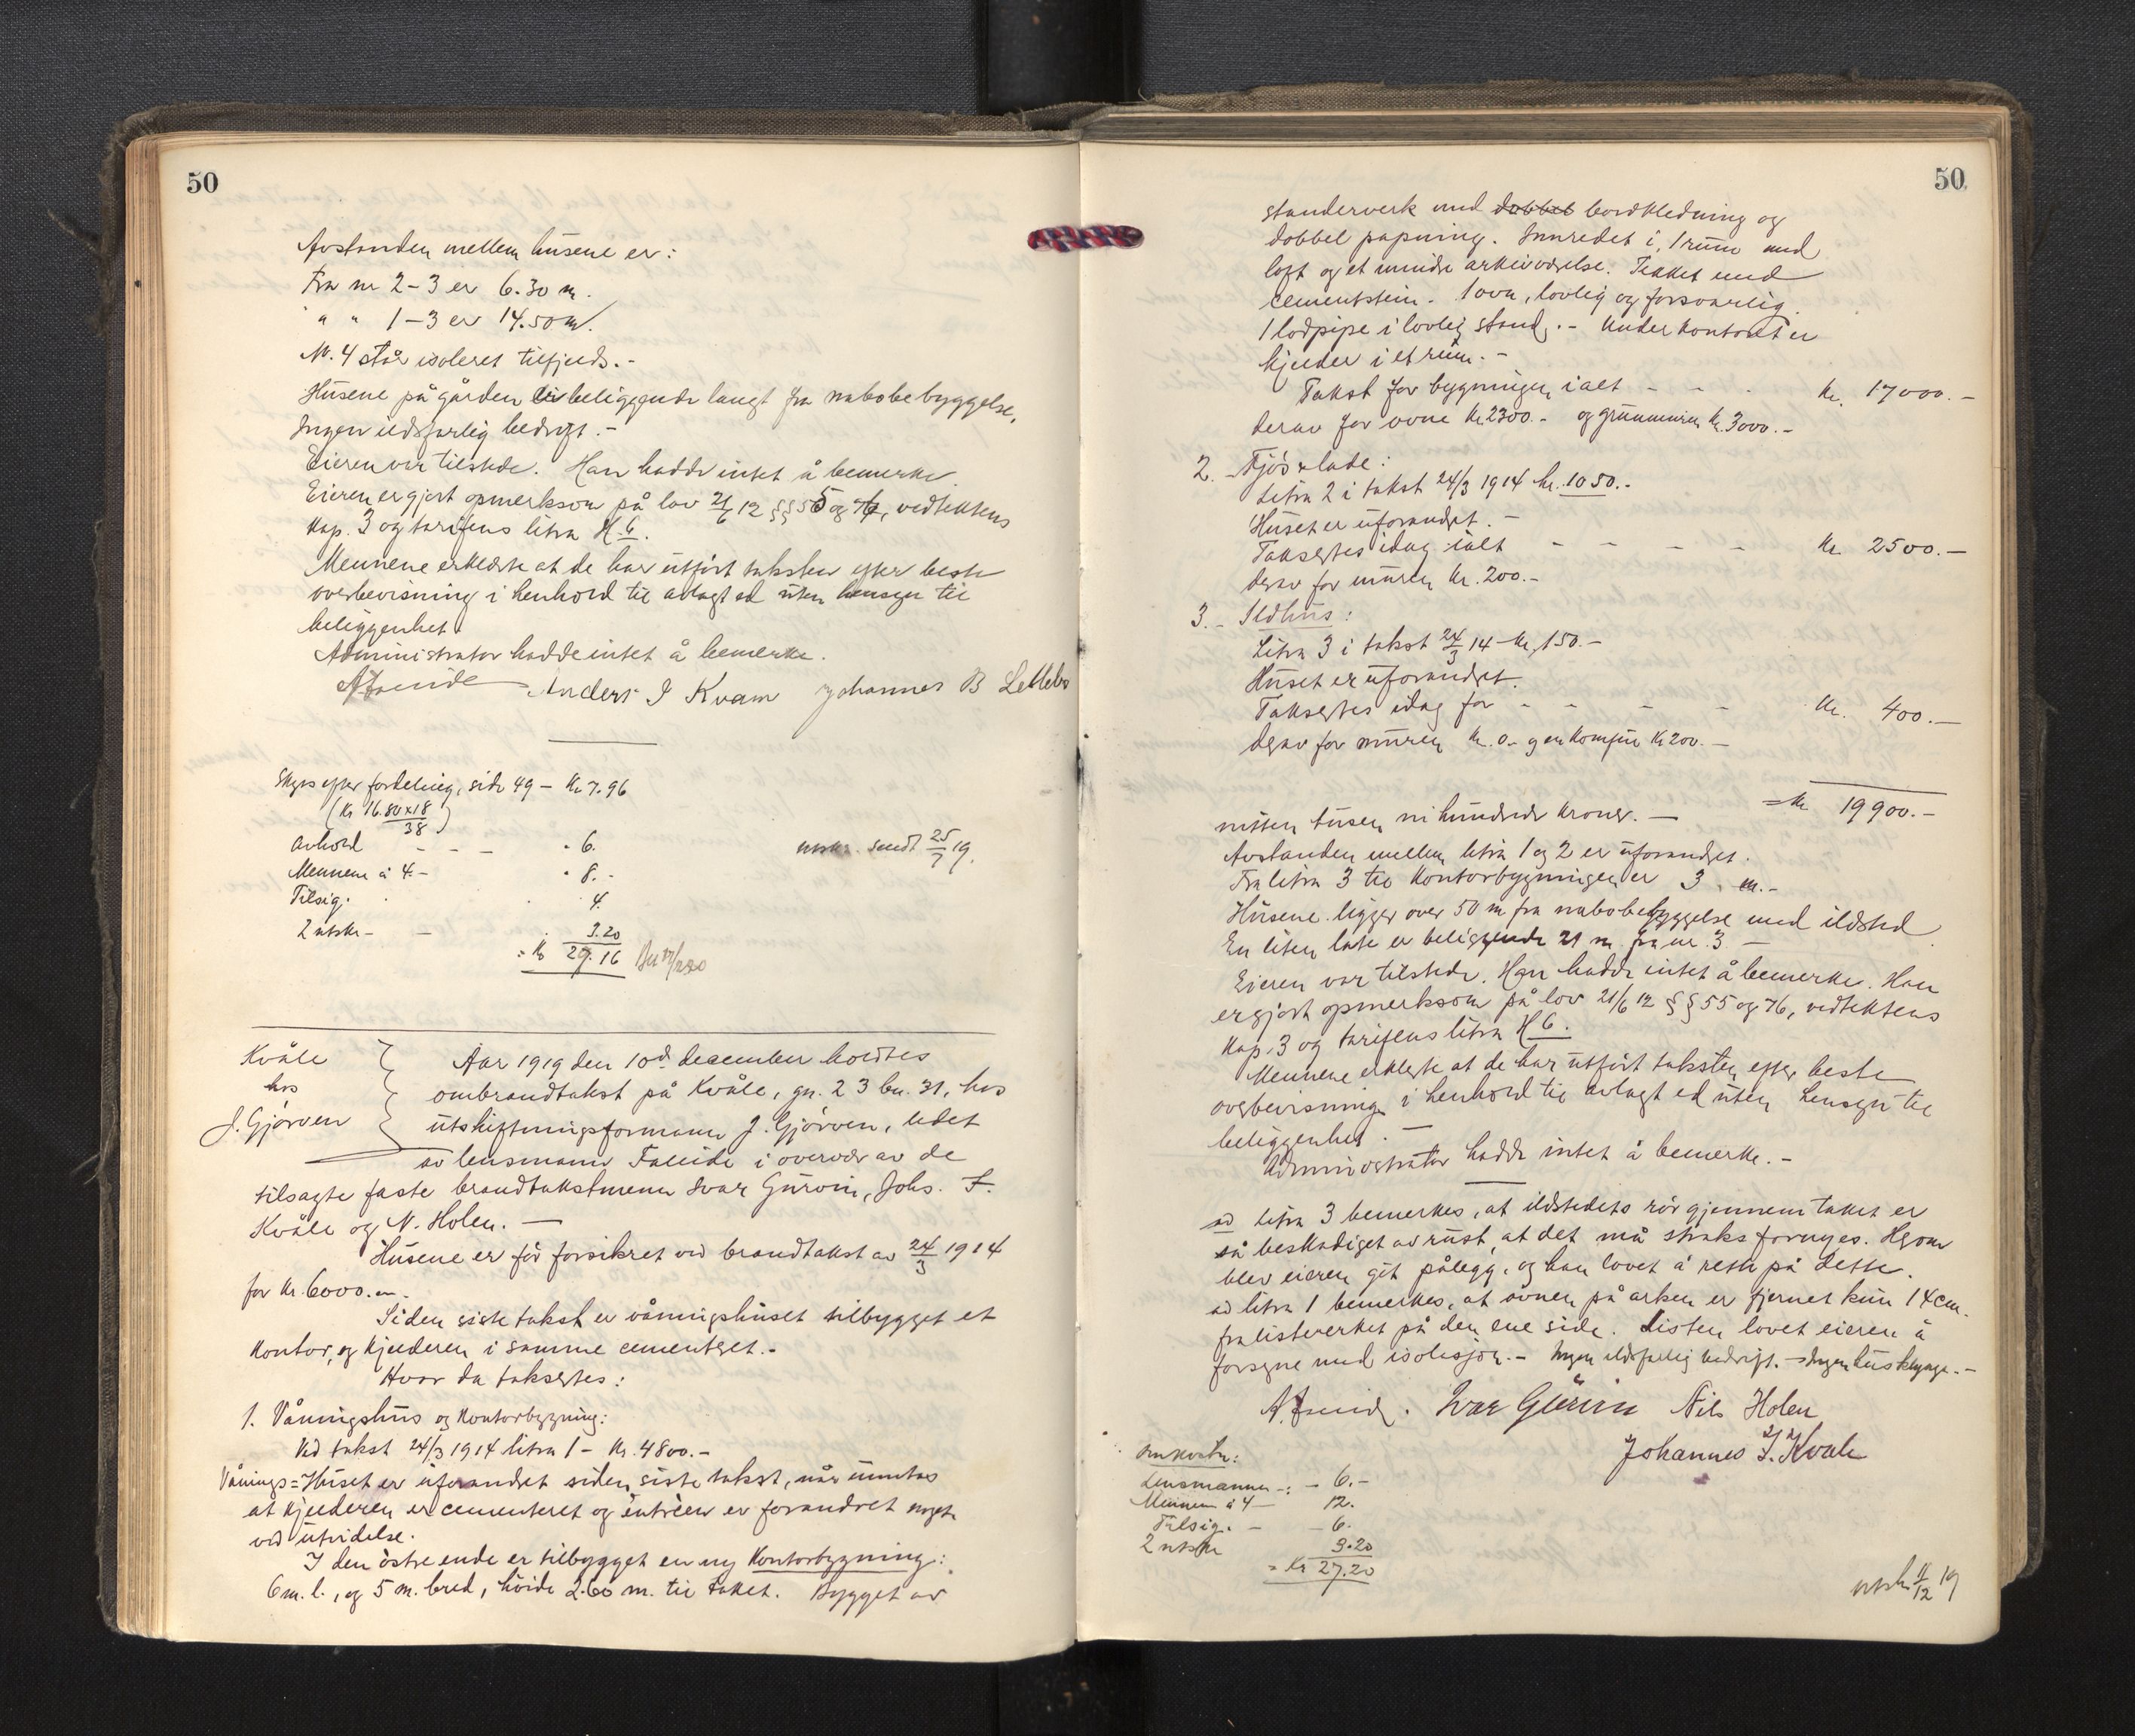 50
Avstanden mellem husene er:
Fra nr 2-3 er 6.30 m.
" " 1-3 er 14.50 m.
Nr. 4 står isoleret tilfjelds.-
Husene på gården er beliggende langt fra nabobebyggelse.
Ingen ildsfarlig bedrift.-
Eieren var tilstede. Han hadde intet å bemerke.
Eieren er gjort opmerksom på lov 21/6 12 §§ 55 og 76, vedtektens
kap. 3 og tarifens litra H.6.
Mennene erklærte at de har utført taksten efter beste
overbevisning i henhold til avlagt ed uten hensyn til
beliggenhet.
Administrator hadde intet å bemerke.
Anders I Kvam Johannes B
Skyss efter fordeling, side 49 - Kr. 7.96
(Kr 16.80 x 18
38)
avhold - - - " 6.
Mennene à 4.- " 8.-
Tilsig. 4.
2 utskr. - - 3.20
= Kr 29.16
utskr. sendt 25/7 19.
Kvåle
hos
J. Gjörven
Aar 1919 den 10d december holdtes
ombrandtakst på Kvåle, gn. 23 bn. 31, hos
utskiftningsformann J. Gjörven, ledet
av lensmann Faleide i overvær av de
tilsagte faste brandtakstmenn Ivar Gurvin, Johs. I.
Kvåle og N. Holen. -
Husene er för forsikret ved brandtakst av 24/3 1914
for kr. 6000.-
Siden siste takst er våningshuset tilbygget et
kontor, og kjelderen i samme cementeret.-
Hvor da taksertes:
1. Våningshus og kontorbygning:
Ved takst 24/3 1914 litra 1 - Kr. 4800.-
Vånings=Huset er uforandret siden siste takst, når unntas
at kjelderen er cementeret og entreen er forandret noget
ved utvidelse.
I den östre ende er tilbygget en ny kontorbygning:
6 m. l., og 5 m. bred, höide 2.60 m. til taket. Bygget av
50
standerverk med dobbel bordkledning og
dobbel papning. Innredet i 1 rum med
loft og et mindre arkivværelse. Tekket med
cementstein. 1 ovn, lovlig og forsvarlig.
1 lodpipe i lovlig stand.- Under kontoret er
kjelder i et rum.-
Takst for bygningen ialt - - - Kr. 17000.-
derav for ovne Kr. 2300.- og grunnmuren Kr. 3000.-
2. Fjös & lade:
Litra 2 i takst 24/3 1914 kr. 1050.-
Huset er uforandret.-
Taksertes idag ialt - - - - Kr. 2500.-
derav for muren Kr. 200.-
3.- Ildhus:
Litra 3 i takst 24/3 14 - Kr. 150.-
Huset er uforandret.
Taksertes idag for - - - - Kr. 400.-
derav for muren Kr. 0.- og en komfur Kr 200.-
nitten tusen ni hundrede kroner.- = Kr 19900.-
Avstanden mellem litra 1 og 2 er uforandret.
Fra litra 3 til kontorbygningen er 3 m.-
Husene ligger over 50 m fra nabobebyggelse med ildsted.
En liten lade er beliggende 21 m. fra nr. 3 -
Eieren var tilstede. Han hadde intet å bemerke. Han
er gjort opmerksom på lov 21/6 12 §§ 55 og 76, vedtektens
kap. 3 og tarifens litra H 6.
Mennene erklerte at de har utfört taksten efter beste
overbevisning i henhold til avlagt ed uten hensyn til
beliggenhet.-
Administrator hadde intet å bemerke.-
ad litra 3 bemerkes, at ildstedets rör gjennem taket er
så beskadiget av rust, at det må straks fornyes. Herom
blev eieren git pålegg, og han lovet å rette på dette.
ad litra 1 bemerkes, at ovnen på arken er fjernet kun 14 cm.
fra listverket på den ene side. Listen lovet eieren å
forsyne med isolasjon.- Ingen ildsfarlig bedrift.- Ingen husklynge.-
Ivar Gurvin Nils Holen
Johannes I. Kvåle
Omkostn:
Lensmannen -: - 6.-
Mennene à 4 - 12.
Tilsig. - - 6.
2 utskr 3.20
= Kr 27.20
utskr 11/12 19